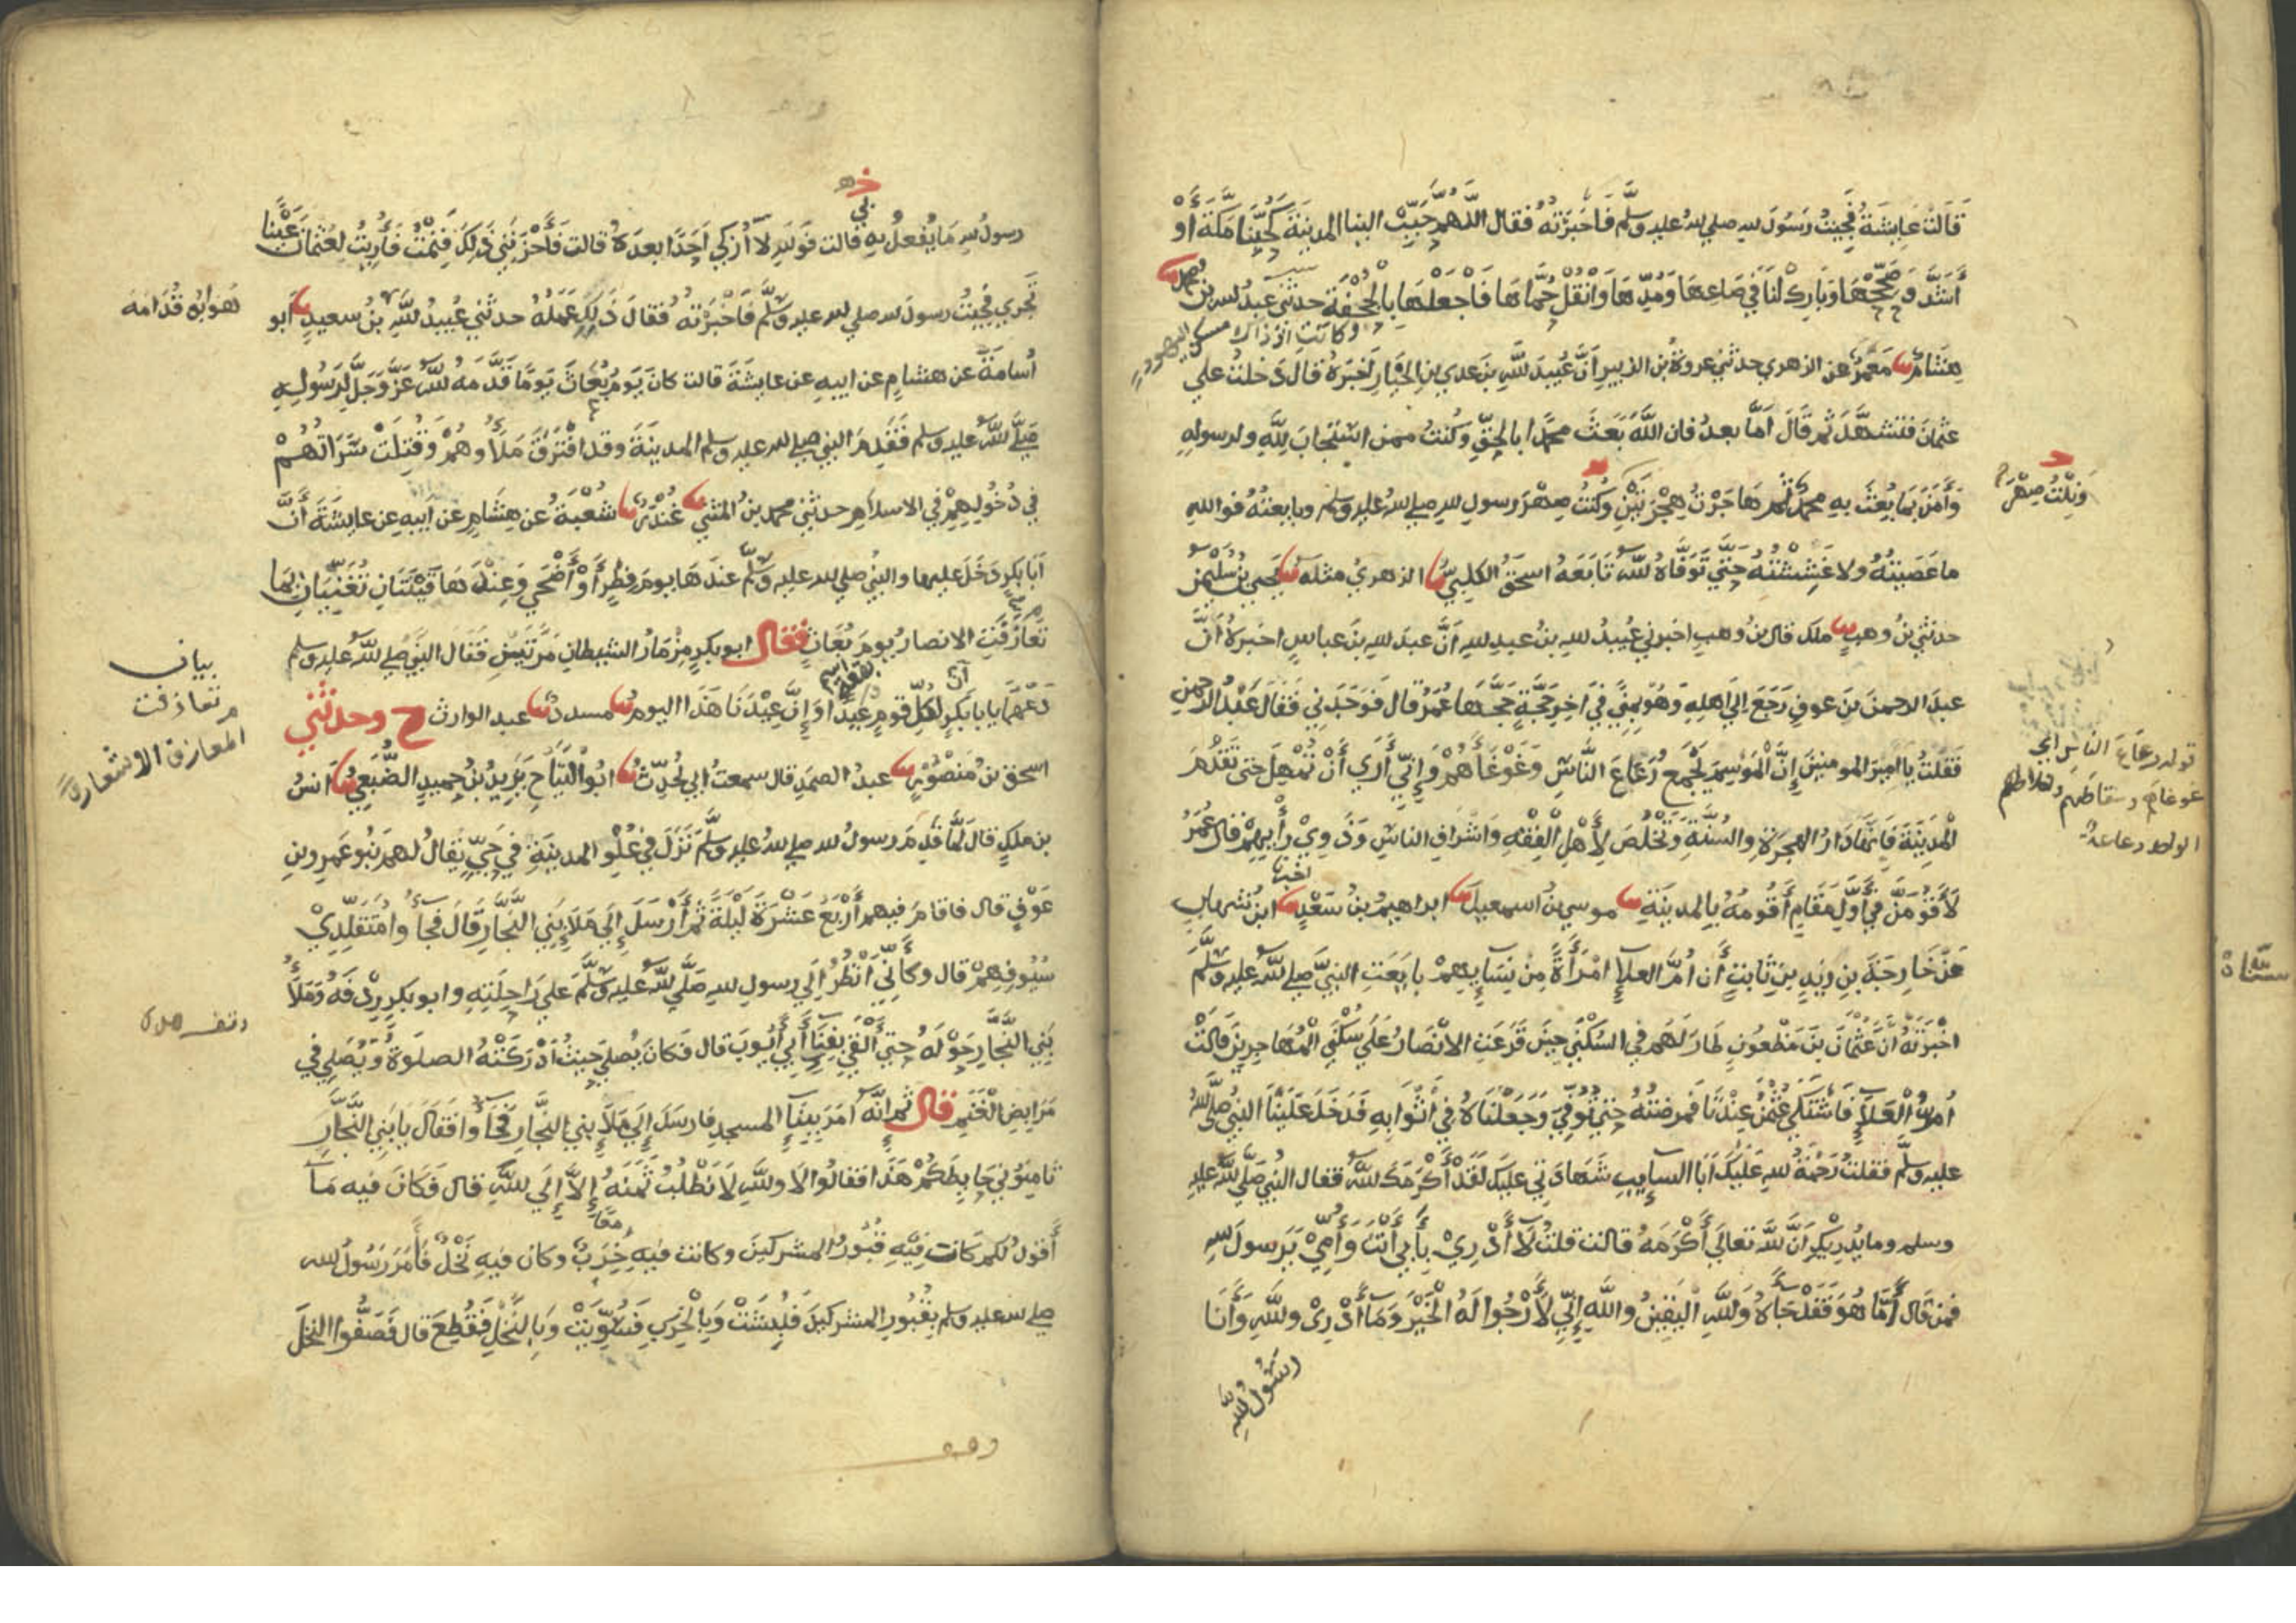 قَالَتْ عَايِشَةُ فَجِيتُ رَسُولَ لله صلي لله عليه وسلَّم فَاَخبَرْتُهُ فقال اللَّهُمَّ حَبِّبْ الينا المدينَةَ كَحُبِّنَا مَكَّةَ أَوْ
أَشَدَّ وَ صَحِّحْهَا وَبَارِكْ لَنَا في صَاعِهَا وَمُدِّهَا وَانْقُلْ حُمَّاهَا فَاجْعَلْهَا بِالْجُحْفَةِ حدثني عبدُ لله بن محمد
وكانت اذ ذاك مسكن اليهود
هِشَامٌ مَعْمَرٌ عن الزهري حدثني عروةُ بن الزبير اَنَّ عُبيدَ للَّهِ بنَ عدي بنِ الخِيَارِ اَخبَرَهُ قال دَخلتُ علي
عثمانَ فتشهَّدَ ثم قَالَ اَمَّا بعدُ فان اللَّهَ بَعَثَ محمَّدا بالحقِّ وكُنتُ ممن استَجابَ لِلَّهِ ولرسولِهِ
وَآمَنَ بمَا بُعِثَ بهِ محمدٌ ثم هَاجَرْتُ هِجْرَتَيْنِ وَكُنتُ صِهْرَ رسولِ لله صلي لله عليه وسلم وبايعتُهُ فوالله
وَنِلْتُ صِهْرَ
ما عَصَيتُهُ ولا غَشِشْتُهُ حَتَّي تَوَفَّاهُ للَّه تَابَعَهُ اسحقُ الكلبيُّ الزهريُ مثلَهُ يحيي بنُ سُلَيْمٰن
حدثني بنُ وهبٍ ملك قال بنُ وهبٍ اخبرني عُبيدُ لله بنُ عبدِ لله اَنَّ عبدَ لله بنَ عباسٍ اخبرهُ اَنَّ
عبدَ الرحمنَ بنَ عوفٍ رَجَعَ اِلَي اهلِهِ وَهُوَ بِمِنًي في اٰخِرِ حَجَّةٍ حَجَّهَا عُمَرُ قال فَوَجَدَنِي فَقَالَ عَبْدُ الرحمنِ
فَقلتُ يا اميرَ المومنينَ اِنَّ الْمَوْسِمَ يَجْمَعُ رُعَاعَ النَّاسِ وَغَوْغَاءَهُمْ وَاِنِّي أَرَي أَنْ تُمْهِلَ حَتي تَقْدَمَ
قوله رعَاعَ الناس اي
غوغاهم وسقاطهم واخلاطهم
الواحد رعاعة
الْمَدِينَةَ فَاِنَّهَا دَارُ الهجرَةِ والسُنَّةِ وَتَخْلُصَ لِأَهْلِ الْفِقْهِ وَاشرافِ الناسِ وَذَوِيْ رَأْيِهِمْ قال عُمَرُ
لَأَقُوْمَنَّ فِي أَوَّلِ مَقَامٍ أَقُومُهُ بالمدينَةِ موسي بنُ اسمعيلَ ابراهيمُ بنُ سَعْدٍ ابنُ شهابٍ
عَنْ خَارِجَةَ بنِ زيدِ بنِ ثابتٍ أَن اُمَّ العلاءِ امْرَأَةً مِنْ نِسَايِهِمْ بايَعَتِ النبيَّ صلي للَّه عليه وسلَّم
اخْبَرَتْهُ اَنَّ عُثْمَانَ بنَ مَظْعونٍ طارَ لَهم في السُكْنَي حِينَ قَرَعَتِ الانْصَارُ عَلَي سُكْنَي الْمُهَاجِرِينَ قالَتْ
اُمُّ الْعَلَاءِ فَاشْتَكَي عُثْمٰنُ عِنْدَنَا فَمَرَضتُهُ حَتي تُوُفِّيَ وَجَعَلْنَاهُ في اَثْوَابِهِ فَدَخَلَ عَلَيْنَا النبيُ صلي للَّه
عليه وسلَّم فقلتُ رَحْمَةُ للهِ عَلَيْكَ اَبَا السايِبِ شَهَادَتِي عليك لَقَدْ أَكْرَمَكَ للَّهُ فقال النبيُ صلي للَّه عليه
وسلم وما يُدرِيْكِ اَنَّ للَّهَ تعالَي أَكْرَمَهُ قالت قلتُ لَا أَدْرِيْ بِأَبِي أَنْتَ وَأُمِّيْ يَرسولَ لله
فمن قال أَمَّا هُوَ فَقَدْ جَاءَهُ وَللَّهِ الْيَقِينُ واللَّهِ إِنِّي لَأَرْجُوا لَهُ الْخَيْرَ وَمَا أَدْرِيْ وللَّهِ وَأَنَا
رسُولُ للَّهِ
رسولُ لله مَا يُفعَلُ بِي قالت فَوَللهِ لا أُزَكي اَحَدًا بعدَهُ قالت فَأَحْزَنَنِي ذَلِكَ فَنِمْتُ فَأُرِيتُ لِعُثمانَ عَيْنًا
تَجْرِي فجيتُ رسولَ لله صلي لله عليه وسلَّم فَاَخْبَرْتهُ فقال ذَلِكِ عَمَلُهُ حدثني عُبيدُ للَّهِ بنُ سعيدٍ أَبو
هو ابو قُدَامَة
أُسامَةَ عن هشامٍ عن ابيهِ عن عايشَةَ قالت كانَ يَومُ بُعَاثَ يَومًا قَدَّمَهُ للَّهُ عَزَّ وَجَلَّ لِرَسُولِهِ
صَلَّي للَّه عليه وسلم فَقَدِمَ النبي صلي لله عليه وسلم المدينَةَ وقد افْتَرَقَ مَلَأُوهُمْ وَقُتِلَتْ سَرَاتُهُمْ
في دُخُولِهِمْ في الاسلامِ حدثني محمد بنُ المثني غُنْدَرٌ شُعْبَةُ عن هِشَامٍ عن اَبيهِ عن عايشَةَ أَنَّ
اَبَا بكرٍ دَخَلَ عليها والنبيُ صلي لله عليه وسلَّم عندَها يومَ فِطْرٍ أَوْ أَضْحَي وَعِنْدَهَا قَيْنَتَانِ تُغَنِّيَانِ بِمَا
تَعَازَفَتِ الانصارُ يومَ بُعَاثَ فقال ابو بكرٍ مِزْمَارُ الشيطانِ مَرَّتَيْنِ فَقَالَ النَّبيُ صلي للَّه عليه وسلم
بيان
تعازفت
المعازف الاشعار
دَعْهُمَا يَا با بَكْرٍ لِكُلِّ قومٍ عِيْدًا وَاِنَّ عِيْدَنَا هَذَا اليومُ مسددٌ عبد الوارث ح وحدثني
اسحق بنُ مَنْصُوْرٍ عبدُ الصمَدِ قال سمعتُ اَبي يُحَدِّثُ ابُو التَيَّاحِ يَزِيدُ بنُ حُميدٍ الضُّبَعِيُّ اَنسُ
بن ملكٍ قالَ لَمَّا قَدِمَ رسولُ لله صلي للهُ عليه وسلَّم نَزَلَ فِي عُلْوِ المدينَةِ في حَيٍّ يُقَالُ لهم بَنُو عَمْرِو بنِ
عَوْفٍ قال فاقامَ فيهم أَرْبَعَ عَشْرَةَ لَيْلَةً ثُمَّ أَرْسَلَ إِلَي مَلَاءِ بَنِي النَّجَّارِ قَالَ فَجَاءُوا مُتَقَلِّدِيْ
سُيُوفِهِمْ قال وكَأَنِّي اَنْظُرُ اِلَي رسولِ لله صَلَّي للَّه عليه وسلَّم عَلَي رَاحِلَتِهِ وابو بكرٍ رِدْفَهُ وَمَلَأُ
بَنِي النَّجَّارِ حَوْلَهُ حتي أَلْقَي بِفِنَاءِ أَبِي أَيُّوبَ قال فَكانَ يُصلي حيثُ اَدْرَكَتْهُ الصلوةُ وَيُصَلي في
مَرَابِضِ الْغَنَمِ قال ثم اِنَّهُ اَمَرَ بِبِنَاءِ المسجدِ فارسَلَ إِلَي مَلَاءِ بني النجارِ فَجَاءُوا فَقَالَ يَا بَنِي النَّجَّارِ
ثامِنُوْنِي حَايِطَكُمْ هَذَا فقالُوا لا وللَّهِ لَا نَطْلُبُ ثَمَنَهُ إِلَّا إِلَي للَّهِ قال فَكَانَ فيه مَا
أَقولُ لَكُم كَانت فِيْهِ قُبُورُ المشركينَ وكانت فيْهِ خِرَبٌ وكان فيهِ نَخْلٌ فَأَمَرَ رَسُولُ لله
صلي لله عليه وسلم بِقُبُورِ المشركينَ فَنُبِشَتْ وَبِالْخِرَبِ فَسُوِّيَتْ وَبِالنَّخْلِ فَقُطِعَ قال فَصَفُّوا النَّخلَ